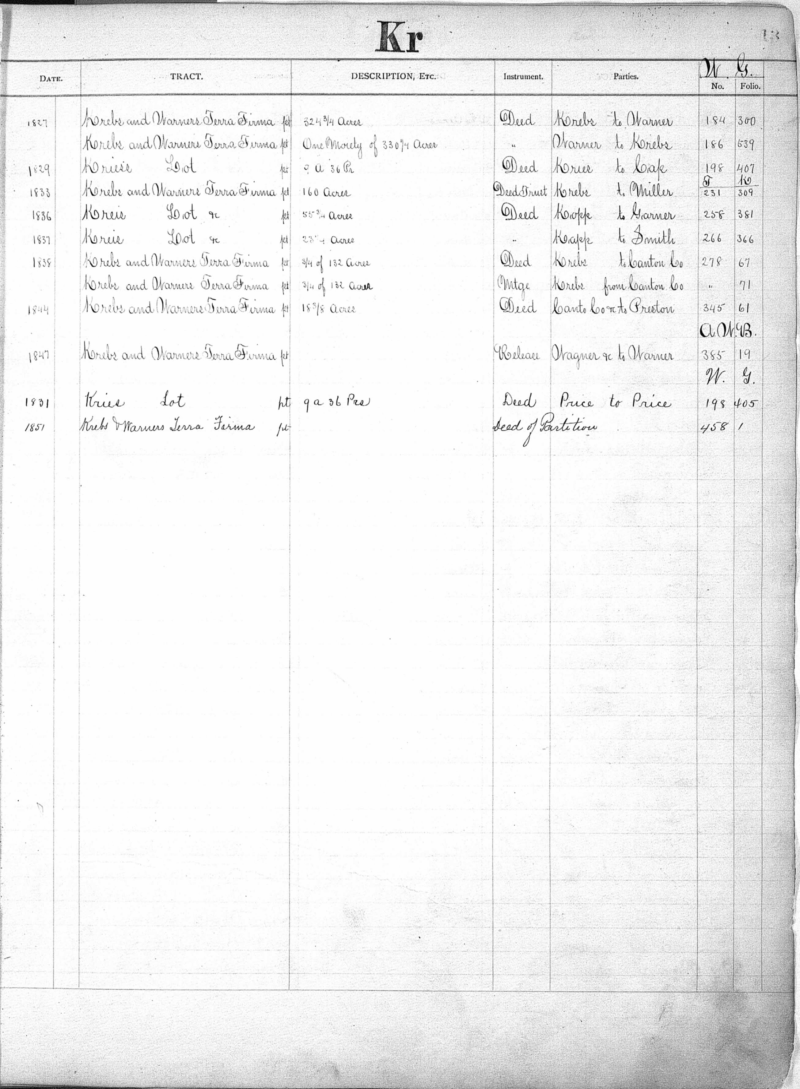 Kr
W. G.
DATE. TRACT. DESCRIPTION, ETC. Instrument. Parties. No. Folio.
1827 Krebs and Warners Terra Firma pt 324 3/4 Acres Deed Krebs to Warner 184 300
Krebs and Warners Terra Firma pt One Moiety of 330 3/4 Acres " Warner to Krebs 186 539
1829 Kriess Lot pt 9 a 36 Ps Deed Kries to Cap 198 407
T K
1833 Krebs and Warners Terra Firma pt 160 Acres Deed Trust Krebs to Miller 231 309
1836 Kreis Lot &c pt Acres Deed Kopp to Garner 258 381
1837 Kreis Lot &c pt Acres " Kapp to Smith 266 366
1838 Krebs and Warners Terra Firma pt 3/4 of 132 Acres Deed Krebs to Canton Co 278 67
Krebs and Warners Terra Firma pt 3/4 of 132 Acres Mtge Krebs from Canton Co " 71
1844 Krebs and Warners Terra Firma pt 18 5/8 Acres Deed Canto Co &c to Preston 345 61
A. W. B.
1847 Krebs and Warners Terra Firma pt Release Wagner &c to Warner 385 19
W. G.
1831 Kries Lot pt 9 a 36 Prs Deed Price to Price 198 405
1851 Krebs & Warners Terra Firma pt Deed of Partition 458 1